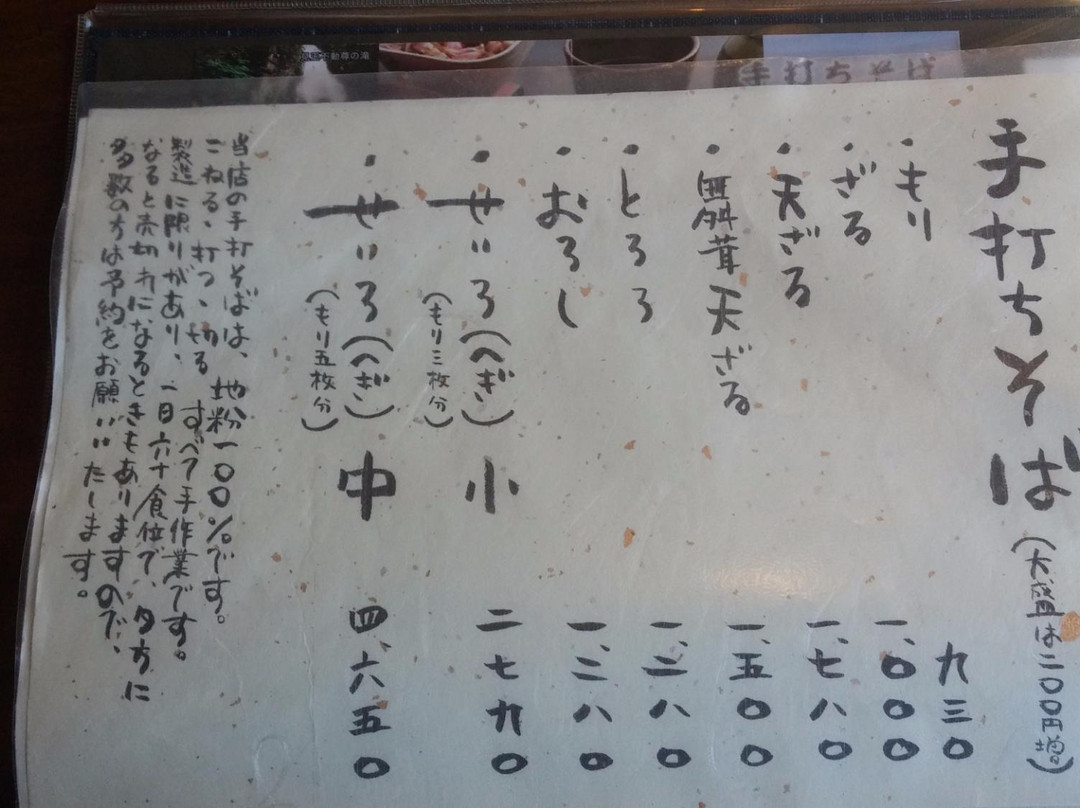 不動尊の滝
手打ちそば
手打ちそば（大盛は二〇〇円増）
・もり 九三〇
・ざる 一、〇〇〇
・天ざる 一、七八〇
・舞茸天ざる 一、五〇〇
・とろろ 一、二八〇
・おろし 一、二八〇
・せいろ（へぎ）小 二七九〇
（もり三枚分）
・せいろ（へぎ）中 四、六五〇
（もり五枚分）
当店の手打そばは、地粉一〇〇％です。
こねる、打つ、切る すべて手作業です。
製造に限りがあり、一日六十食位で、夕方に
なると売切れになるときもありますので、
多数の方は予約をお願いいたします。